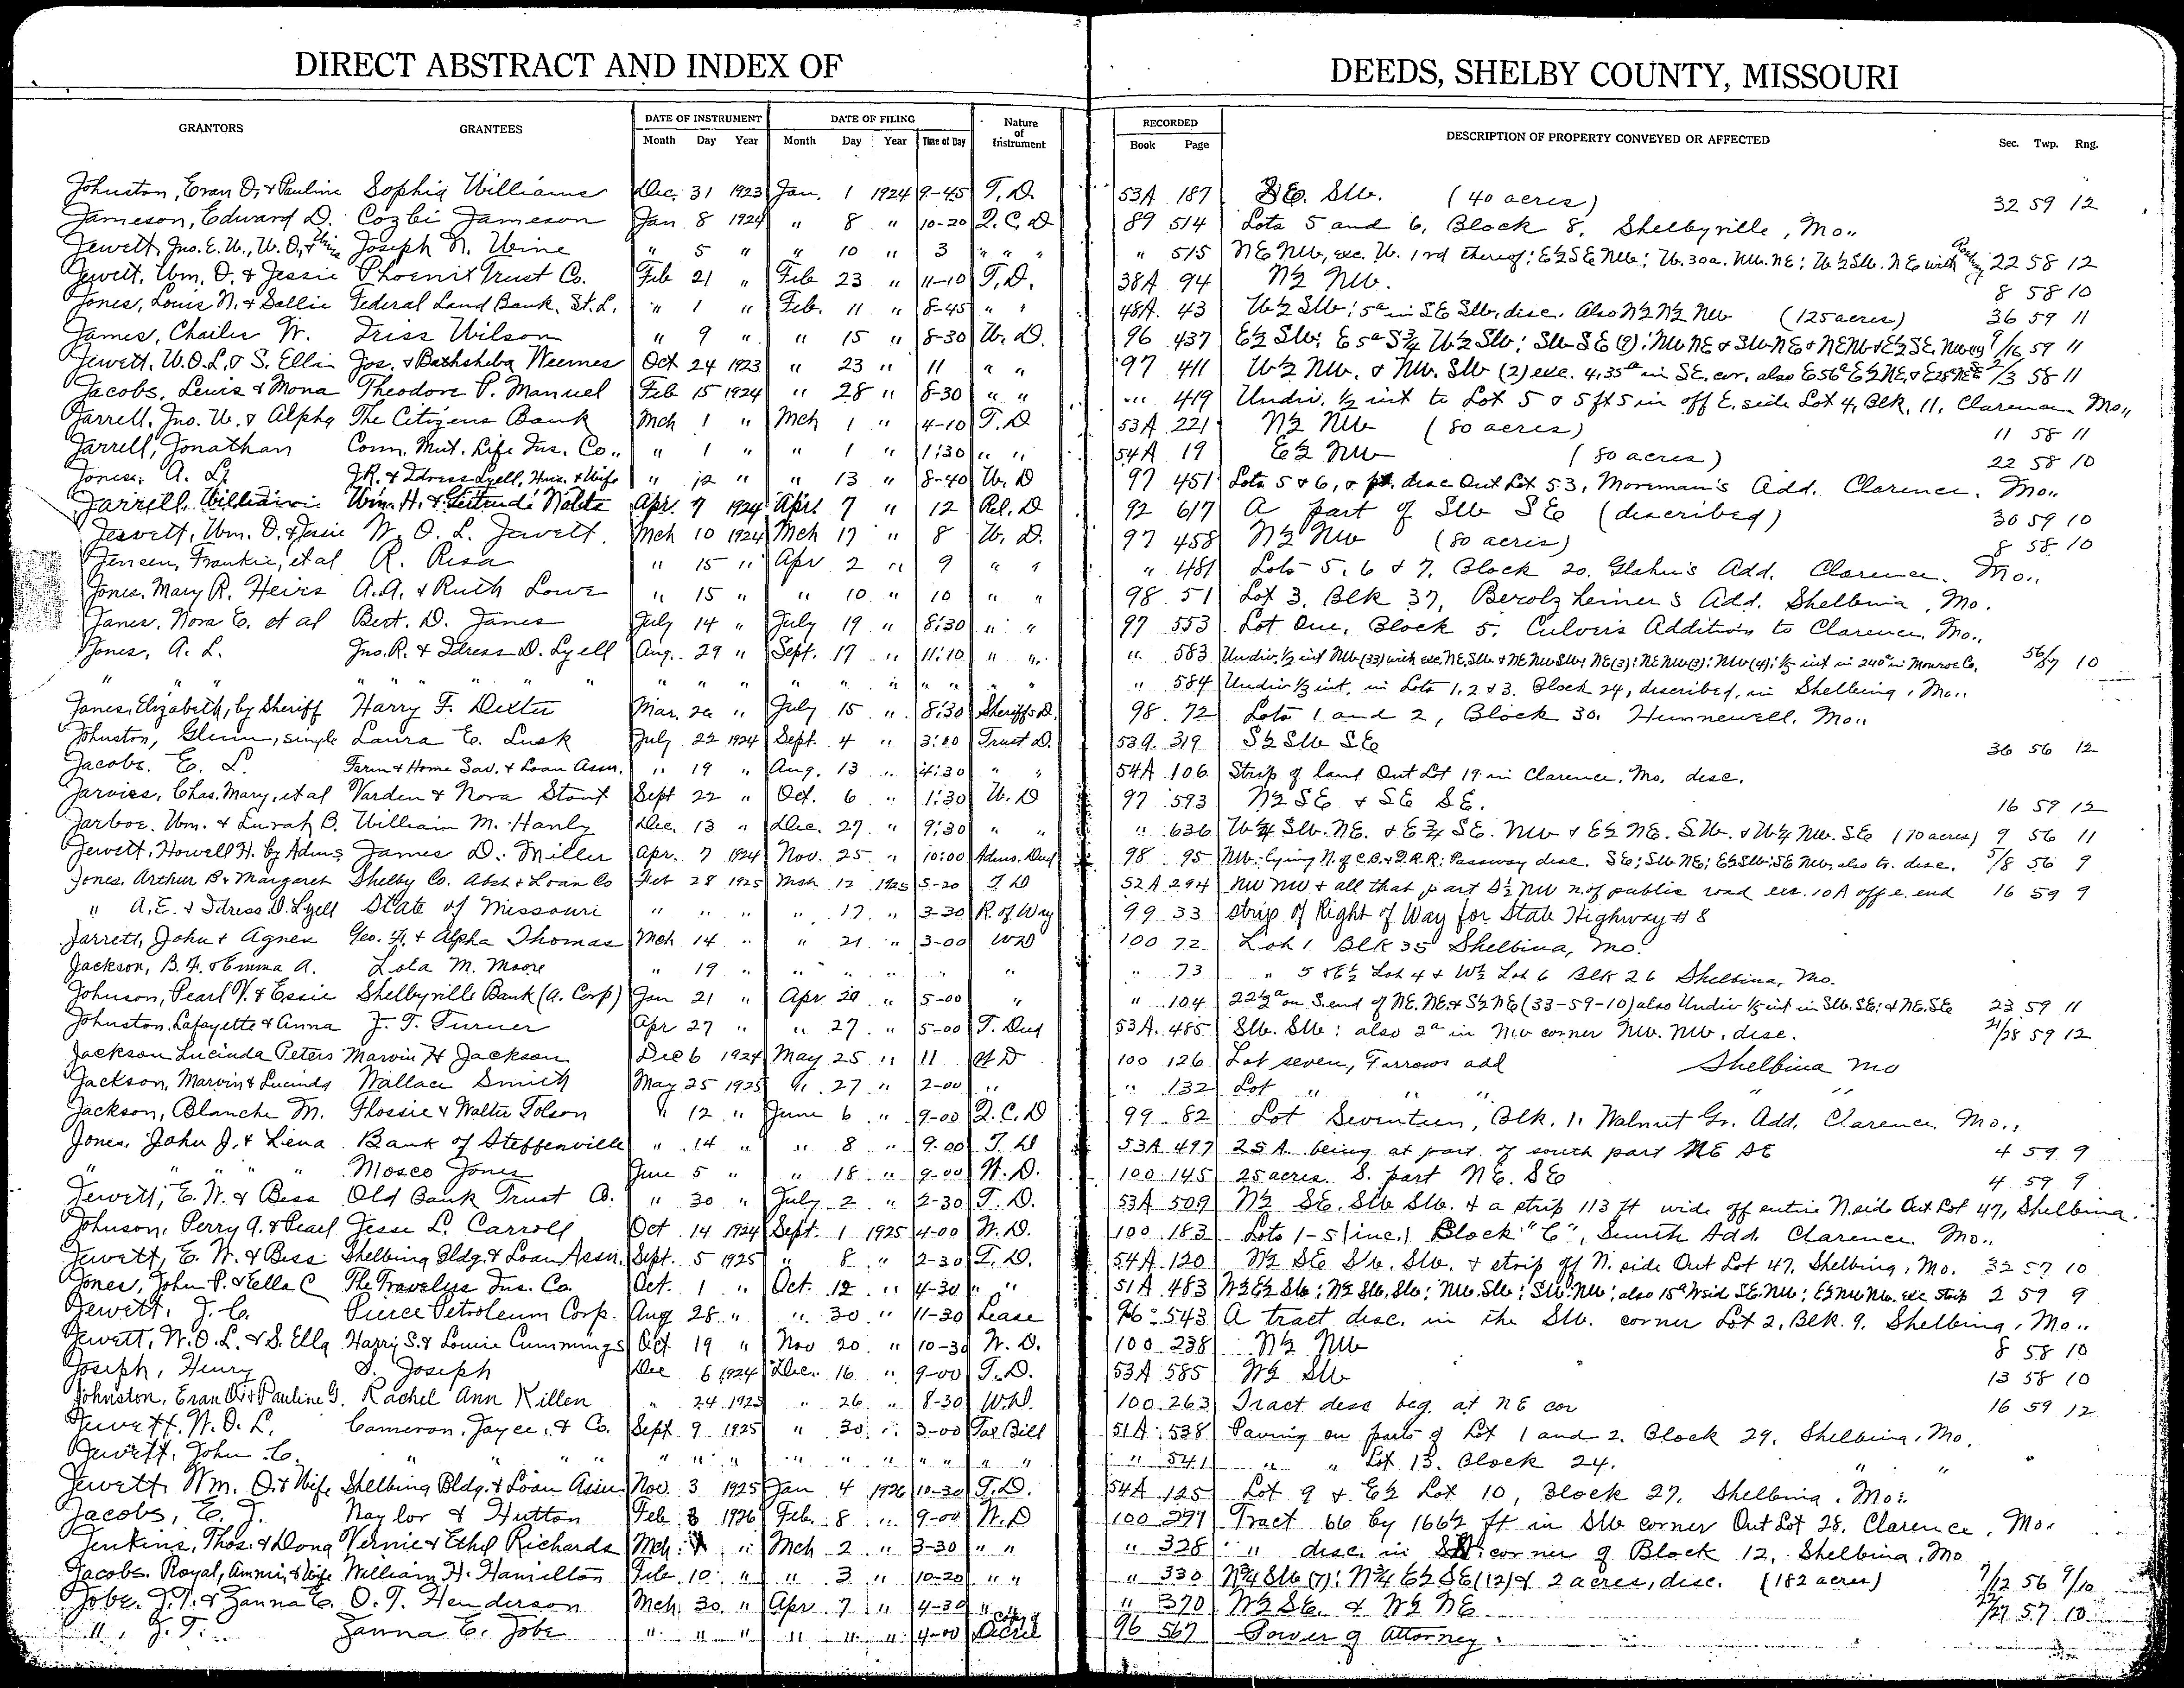 DIRECT ABSTRACT AND INDEX OF DEEDS, SHELBY COUNTY, MISSOURI
GRANTORS GRANTEES DATE OF INSTRUMENT DATE OF FILING Nature of Instrument RECORDED DESCRIPTION OF PROPERTY CONVEYED OR AFFECTED Sec. Twp. Rng.
Month Day Year Month Day Year Time of Day Book Page
Johnston, Evan O. & Pauline Sophia Williams Dec. 31 1923 Jan. 1 1924 9-45 T. D. 53A 187 SE. SW. (40 acres) 32 59 12
Jameson, Edward D. Cozbi Jameson Jan 8 1924 " 8 " 10-20 Q. C. D 89 514 Lots 5 and 6, Block 8, Shelbyville, Mo..
Jewett, Jno. E. W., W. O., & Wife Joseph N. Urine " 5 " " 10 " 3 " " " " 515 NE NW, exc. W. 1 rd thereof; E½SE NW; W. 30a. NW. NE; W½SW. NE with 22 58 12
Jewett, Wm. O. & Jessie Phoenix Trust Co. Feb 21 " Feb 23 " 11-10 T. D. 38A 94 N½ NW. 8 58 10
Jones, Louis N. & Sallie Federal Land Bank, St. L. " 1 " Feb. 11 " 8-45 " " 48A. 43 W½ SW; 5a in SE SW, disc. Also N½ N½ NW (125 acres) 36 59 11
James, Charles W. Driss Wilson " 9 " " 15 " 8-30 W. D. 96 437 E½ SW; E 5a S¾ W½ SW; SW SE (9); NW NE & SW NE & NENW & E½ SE NW 9/16 59 11
Jewett, W.O.L. & S. Ella Jos. & Bathsheba Weemes Oct 24 1923 " 23 " 11 " " 97 411 W½ NW. & NW. SW (2) exc. 4.35a in SE. cor. also E56a E½NE, & E25a NE SE 2/3 58 11
Jacobs, Lewis & Mona Theodore P. Manuel Feb 15 1924 " 28 " 8-30 " " " 419 Undiv. ½ int to Lot 5 & 5 ft 5 in off E. side Lot 4, Blk. 11, Clarence Mo..
Jarrell, Jno. W. & Alpha The Citizens Bank Mch 1 " Mch 1 " 4-10 T. D 53A 221 N½ NW (80 acres) 11 58 11
Jarrell, Jonathan Conn. Mut. Life Ins. Co.. " 1 " " 1 " 1:30 " " 54A 19 E½ NW (80 acres) 22 58 10
Jones, A. L. J.R. & Idress Lyell, Hus. & Wife " 12 " " 13 " 8-40 W. D 97 451 Lots 5 & 6, & pt. disc Out Lot 53, Moreman's Add. Clarence. Mo..
Jarrell, William Wm. H. & Gertrude Nolts Apr. 7 1924 Apr. 7 " 12 Rel. D 92 617 A part of SW SE (described) 30 59 10
Jewett, Wm. O. & Jessie W. O. L. Jewett. Mch 10 1924 Mch 17 " 8 W. D. 97 458 N½ NW (80 acres) 8 58 10
Jensen, Frankie, et al R. Risa " 15 " Apr 2 " 9 " " " 481 Lots 5, 6 & 7, Block 20. Glahn's Add. Clarence. Mo..
Jones, Mary R. Heirs A.A. & Ruth Lowe " 15 " " 10 " 10 " " 98 51 Lot 3. Blk 37, Berolzheimer's Add. Shelbina, Mo.
Janes, Nora E. et al Bert. D. Janes July 14 " July 19 " 8:30 " " 97 553 Lot One, Block 5, Culver's Addition to Clarence, Mo..
Jones, A. L. Jno. R. & Idress D. Lyell Aug. 29 " Sept. 17 " 11:10 " " " 583 Undiv. ½ int NW (33) with exc. NE, SW & NE NW SW; NE (3); NE NW (3); NW (4); ½ int in 240a in Monroe Co. 56/57 10
" " " " " " " " " " " " " " " 584 Undiv ½ int. in Lots 1, 2 & 3. Block 24, described, in Shelbina, Mo..
Janes, Elizabeth, by Sheriff Harry F. Dexter Mar. 20 " July 15 " 8:30 Sheriff's D. 98. 72 Lots 1 and 2, Block 30. Hunnewell, Mo..
Johnston, Glenn, single Laura E. Lusk July 22 1924 Sept. 4 " 3:00 Trust D. 53A. 319 S½ SW SE 36 56 12
Jacobs. E. L. Farm & Home Sav. & Loan Assn. " 19 " Aug. 13 " 4:30 " " 54A 106 Strip of land Out Lot 19 in Clarence, Mo. desc.
Jarvies, Chas. Mary, et al Varden & Nora Stout Sept 22 " Oct. 6 " 1:30 W. D 97 593 N½ SE & SE SE. 16 59 12
Jarboe. Wm. & Lurah B. William M. Hanly Dec. 13 " Dec. 27 " 9:30 " " " 636 W¼ SW. NE. & E¾ SE. NW & E½ NE. SW. & W¼ NW. SE (70 acres) 9 56 11
Jewett, Howell H. by Adms James D. Miller Apr. 7 1924 Nov. 25 " 10:00 Adms. Deed 98 95 NW; lying N. of C.B. & Q.R.R; Passway disc. SE; SW NE; E½ SW; SE NW, also tr. disc. 5/8 56 9
Jones, Arthur B. & Margaret Shelby Co. Abst & Loan Co Feb 28 1925 Mch 12 1925 5-20 T. D 52A 294 NW NW & all that part S½ NW N. of public road exc. 10A off e. end 16 59 9
" A.E. & Idress D. Lyell State of Missouri " " " " 17 " 3-30 R. of Way 99 33 Strip of Right of Way for State Highway #8
Jarrett, John & Agnes Geo. H. & Alpha Thomas Mch 14 " " 21 " 3-00 WD 100 72 Lot 1 Blk 35 Shelbina, Mo.
Jackson, B. F. & Emma A. Lola M. Moore " 19 " " " " " " " 73 " 5 & E½ Lot 4 & W½ Lot 6 Blk 26 Shelbina, Mo.
Johnson, Pearl V. & Essie Shelbyville Bank (A. Corp) Jan 21 " Apr 20 " 5-00 " " 104 22½a on S. end of NE. NE & S½ NE (33-59-10) also Undiv ½ int in SW. SE; & NE. SE 23 59 11
Johnston, Lafayette & Anna J. T. Turner Apr 27 " " 27 " 5-00 T. Deed 53A. 485 SW. SW; also 2a in NW corner NW. NW, disc. 21/28 59 12
Jackson Lucinda Peters Marvin H Jackson Dec 6 1924 May 25 " 11 W D 100 126 Lot seven, Farrows add Shelbina Mo
Jackson, Marvin & Lucinda Wallace Smith May 25 1925 " 27 " 2-00 " " 132 Lot " " " " "
Jackson, Blanche M. Flossie & Walter Tolson " 12 " June 6 " 9-00 Q. C. D 99 82 Lot Seventeen, Blk. 1, Walnut Gr. Add. Clarence Mo..
Jones, John J. & Lena Bank of Steffenville " 14 " " 8 " 9-00 T. D 53A 497 25 A. being at part of south part NE SE 4 59 9
" " " " Mosco Jones June 5 " " 18 " 9-00 W. D. 100 145 25 acres. S. part NE. SE 4 59 9
Jewett, E. W. & Bess Old Bank Trust Co. " 30 " July 2 " 2-30 T. D. 53A 509 N½ SE. SW SW. & a strip 113 ft wide off entire N. side Out Lot 47, Shelbina.
Johnson, Perry A. & Pearl Jesse L. Carroll Oct 14 1924 Sept. 1 1925 4-00 W. D. 100 183 Lots 1-5 (inc.) Block "C", Smith Add. Clarence. Mo..
Jewett, E. W. & Bess Shelbina Bldg. & Loan Assn. Sept. 5 1925 " 8 " 2-30 T. D. 54A 120 N½ SE SW. SW. & strip off N. side Out Lot 47. Shelbina, Mo. 32 57 10
Jones, John P. & Ella C The Travelers Ins. Co. Oct. 1 " Oct. 12 " 4-30 " " 51A 483 W½E½ SW; N½ SW. SW; NW. SW; SW. NW; also 15a W side SE. NW; E½ NW NW. exc strip 2 59 9
Jewett, J. C. Pierce Petroleum Corp. Aug 28 " " 30 " 11-30 Lease 96 543 A tract disc. in the SW. corner Lot 2, Blk. 9. Shelbina, Mo..
Jewett, W. O. L. & S. Ella Harry S. & Louie Cummings Oct 19 " Nov 20 " 10-30 W. D. 100 238 N½ NW 8 58 10
Joseph, Henry S. Joseph Dec 6 1924 Dec. 16 " 9-00 T. D. 53A 585 W½ SW 13 58 10
Johnston, Evan O. & Pauline G. Rachel Ann Killen " 24 1925 " 26 " 8-30 W.D. 100 263 Tract desc beg. at NE cor 16 59 12
Jewett, W. O. L. Cameron, Joyce, & Co. Sept 9 1925 " 30 " 3-00 Tax Bill 51A 538 Paving on parts of Lot 1 and 2. Block 29. Shelbina, Mo.
Jewett, John C. " " " " " " " " " " " " " 541 " " Lot 13. Block 24. " "
Jewett, Wm. O. & Wife Shelbina Bldg. & Loan Assn Nov. 3 1925 Jan 4 1926 10-30 T.D. 54A 125 Lot 9 & E½ Lot 10, Block 27, Shelbina, Mo..
Jacobs, E. J. Naylor & Hutton Feb. 3 1926 Feb. 8 " 9-00 W. D 100 297 Tract 66 by 166½ ft in SW corner Out Lot 28, Clarence, Mo.
Jenkins, Thos. & Dona Vernie & Ethel Richards Mch. 1 " Mch 2 " 3-30 " " " 328 " " disc. in corner of Block 12, Shelbina, Mo
Jacobs, Royal, Ammi, & Wife William H. Hamilton Feb. 10 " " 3 " 10-20 " " " 330 N¾ SW (7); N¾ E½ SE (12) & 2 acres, disc. (182 acres) 7/12 56 9/10
Jobe, J. T. & Zanna E. O. T. Henderson Mch. 30 " Apr 7 " 4-30 " " " 370 N½ SE. & N½ NE 27 57 10
" , J. T. Zanna E. Jobe " " " " " " 4-00 Copy of Decree 96 567 Power of Attorney